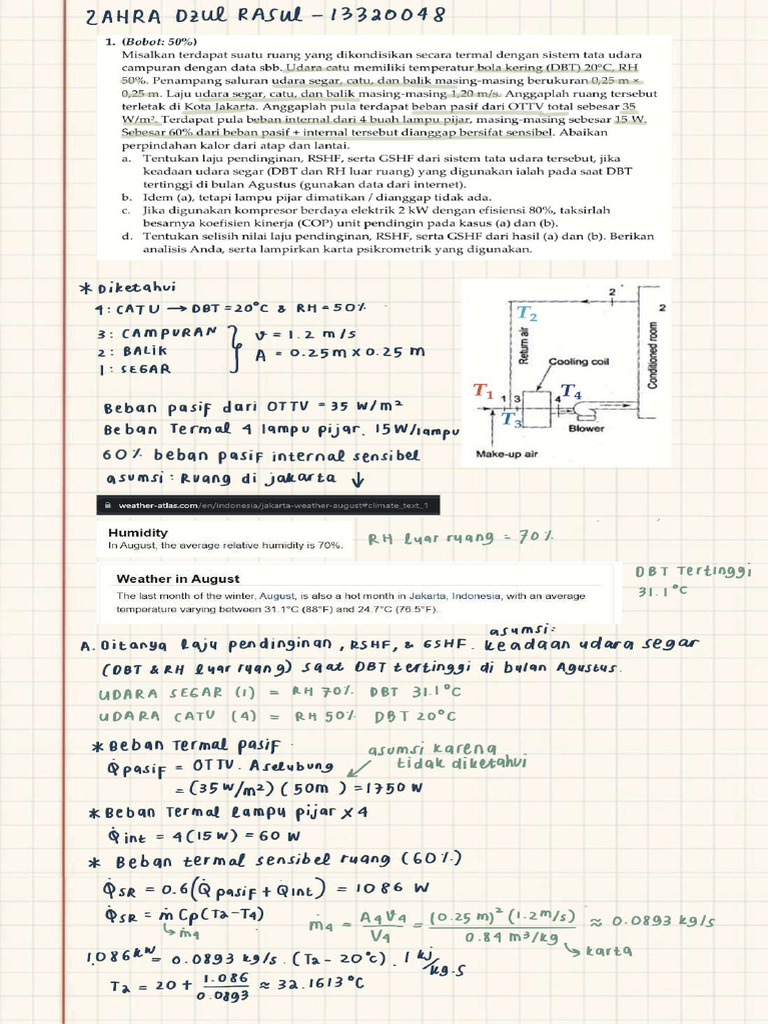 ZAHRA DZUL RASUL - 13320048
1. (Bobot: 50%)
Misalkan terdapat suatu ruang yang dikondisikan secara termal dengan sistem tata udara
campuran dengan data sbb. Udara catu memiliki temperatur bola kering (DBT) 20°C, RH
50%. Penampang saluran udara segar, catu, dan balik masing-masing berukuran 0,25 m ×
0,25 m. Laju udara segar, catu, dan balik masing-masing 1,20 m/s. Anggaplah ruang tersebut
terletak di Kota Jakarta. Anggaplah pula terdapat beban pasif dari OTTV total sebesar 35
W/m². Terdapat pula beban internal dari 4 buah lampu pijar, masing-masing sebesar 15 W.
Sebesar 60% dari beban pasif + internal tersebut dianggap bersifat sensibel. Abaikan
perpindahan kalor dari atap dan lantai.
a. Tentukan laju pendinginan, RSHF, serta GSHF dari sistem tata udara tersebut, jika
keadaan udara segar (DBT dan RH luar ruang) yang digunakan ialah pada saat DBT
tertinggi di bulan Agustus (gunakan data dari internet).
b. Idem (a), tetapi lampu pijar dimatikan / dianggap tidak ada.
c. Jika digunakan kompresor berdaya elektrik 2 kW dengan efisiensi 80%, taksirlah
besarnya koefisien kinerja (COP) unit pendingin pada kasus (a) dan (b).
d. Tentukan selisih nilai laju pendinginan, RSHF, serta GSHF dari hasil (a) dan (b). Berikan
analisis Anda, serta lampirkan karta psikrometrik yang digunakan.
* Diketahui
4: CATU → DBT = 20°C & RH = 50%
3: CAMPURAN
2: BALIK
1: SEGAR
v = 1.2 m/s
A = 0.25m x 0.25 m
Beban pasif dari OTTV = 35 W/m²
Beban Termal 4 lampu pijar. 15W/lampu
60% beban pasif internal sensibel
asumsi: Ruang di jakarta ↓
2
2
T2
Return air
Cooling coil
Conditioned room
T1
1
3
4
T4
T3
Blower
Make-up air
weather-atlas.com/en/indonesia/jakarta-weather-august#climate_text_1
Humidity
In August, the average relative humidity is 70%.
RH luar ruang = 70%
Weather in August
The last month of the winter, August, is also a hot month in Jakarta, Indonesia, with an average
temperature varying between 31.1°C (88°F) and 24.7°C (76.5°F).
DBT Tertinggi
31.1°C
A. Ditanya laju pendinginan, RSHF, & GSHF. asumsi: keadaan udara segar
(DBT & RH luar ruang) saat DBT tertinggi di bulan Agustus.
UDARA SEGAR (1) = RH 70% DBT 31.1°C
UDARA CATU (4) = RH 50% DBT 20°C
* Beban Termal pasif
Q̇pasif = OTTV. Aselubung
asumsi karena
tidak diketahui
= (35 W/m²) (50m) = 1750 W
* Beban Termal lampu pijar x 4
Q̇int = 4(15W) = 60 W
* Beban termal sensibel ruang (60%)
Q̇SR = 0.6(Q̇pasif + Q̇int) = 1086 W
Q̇SR = ṁ Cp(T2-T4)
ṁ4
ṁ4 = A4V4/V4 = (0.25 m)² (1.2m/s)/0.84 m³/kg ≈ 0.0893 kg/s
karta
1.086 kW = 0.0893 kg/s . (T2 - 20°C) . 1 kj/kg.s
T2 = 20 + 1.086/0.0893 ≈ 32.1613°C